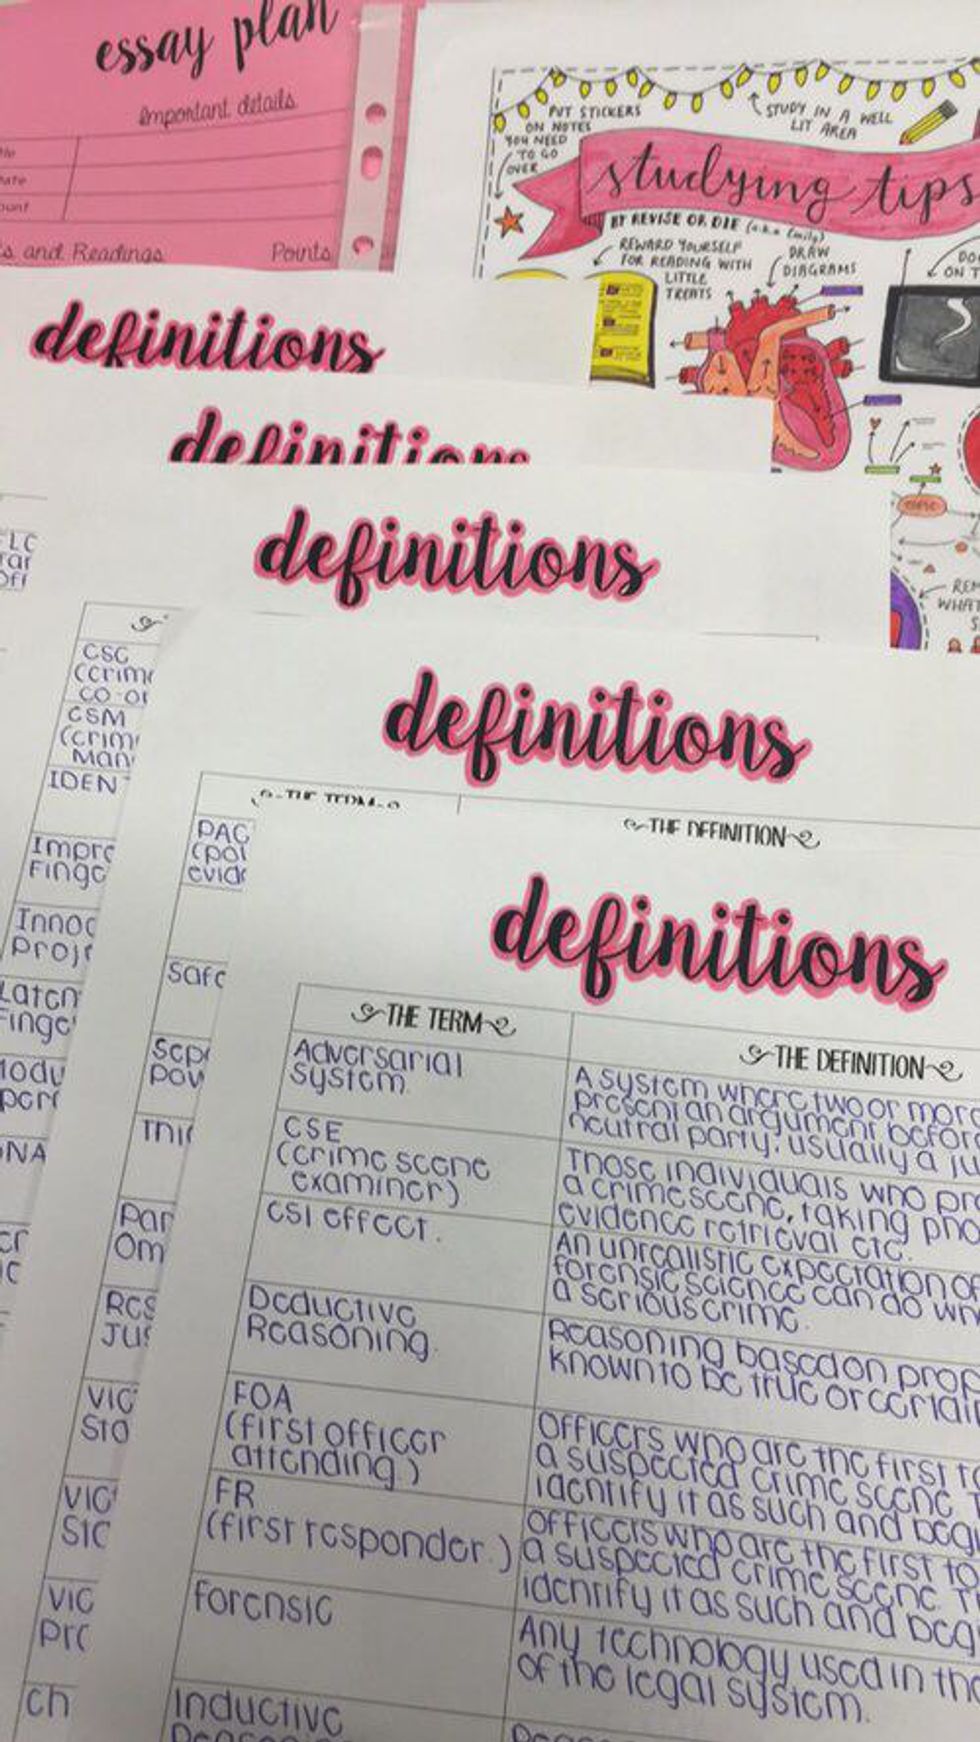 essay plan
Important details
s and Readings
Points
PUT STICKERS
ON NOTES
YOU NEED
TO GO
OVER
STUDY IN A WELL
LIT AREA
studying tips
BY REVISE OR DIE (a.k.a Emily)
REWARD YOURSELF
FOR READING WITH
LITTLE
TREATS
DRAW
DIAGRAMS
DO
ON T
REM
WHAT
S
definitions
definitions
definitions
CSC
(crim
co-or
CSM
(crim
Man
IDEN
Impr
Finge
Innoc
Proj
Laten
Finge
definitions
THE TERM
THE DEFINITION
PAC
(pol
evid
Safe
Sep
pow
Thi
Par
Om
Res
Jus
Vic
Sta
Vic
Vic
pr
ch
definitions
THE TERM
THE DEFINITION
Adversarial
system.
A system where two or mor
present an argument befor
neutral party, usually a ju
CSE
(crime scene
examiner)
Those individuals who pr
a crime scene, taking pho
evidence retrieval etc.
CSI effect.
An unrealistic expectation of
forensic science can do wh
a serious crime.
Deductive
Reasoning.
Reasoning based on prop
known to be true or certai
FOA
(first officer
attending)
Officers who are the first to
a suspected crime scene. T
identify it as such and beg
FR
(first responder.)
Officers who are the first to
a suspected crime scene. Th
identify it as such and beg
Forensic
Any technology used in the
of the legal system.
Inductive